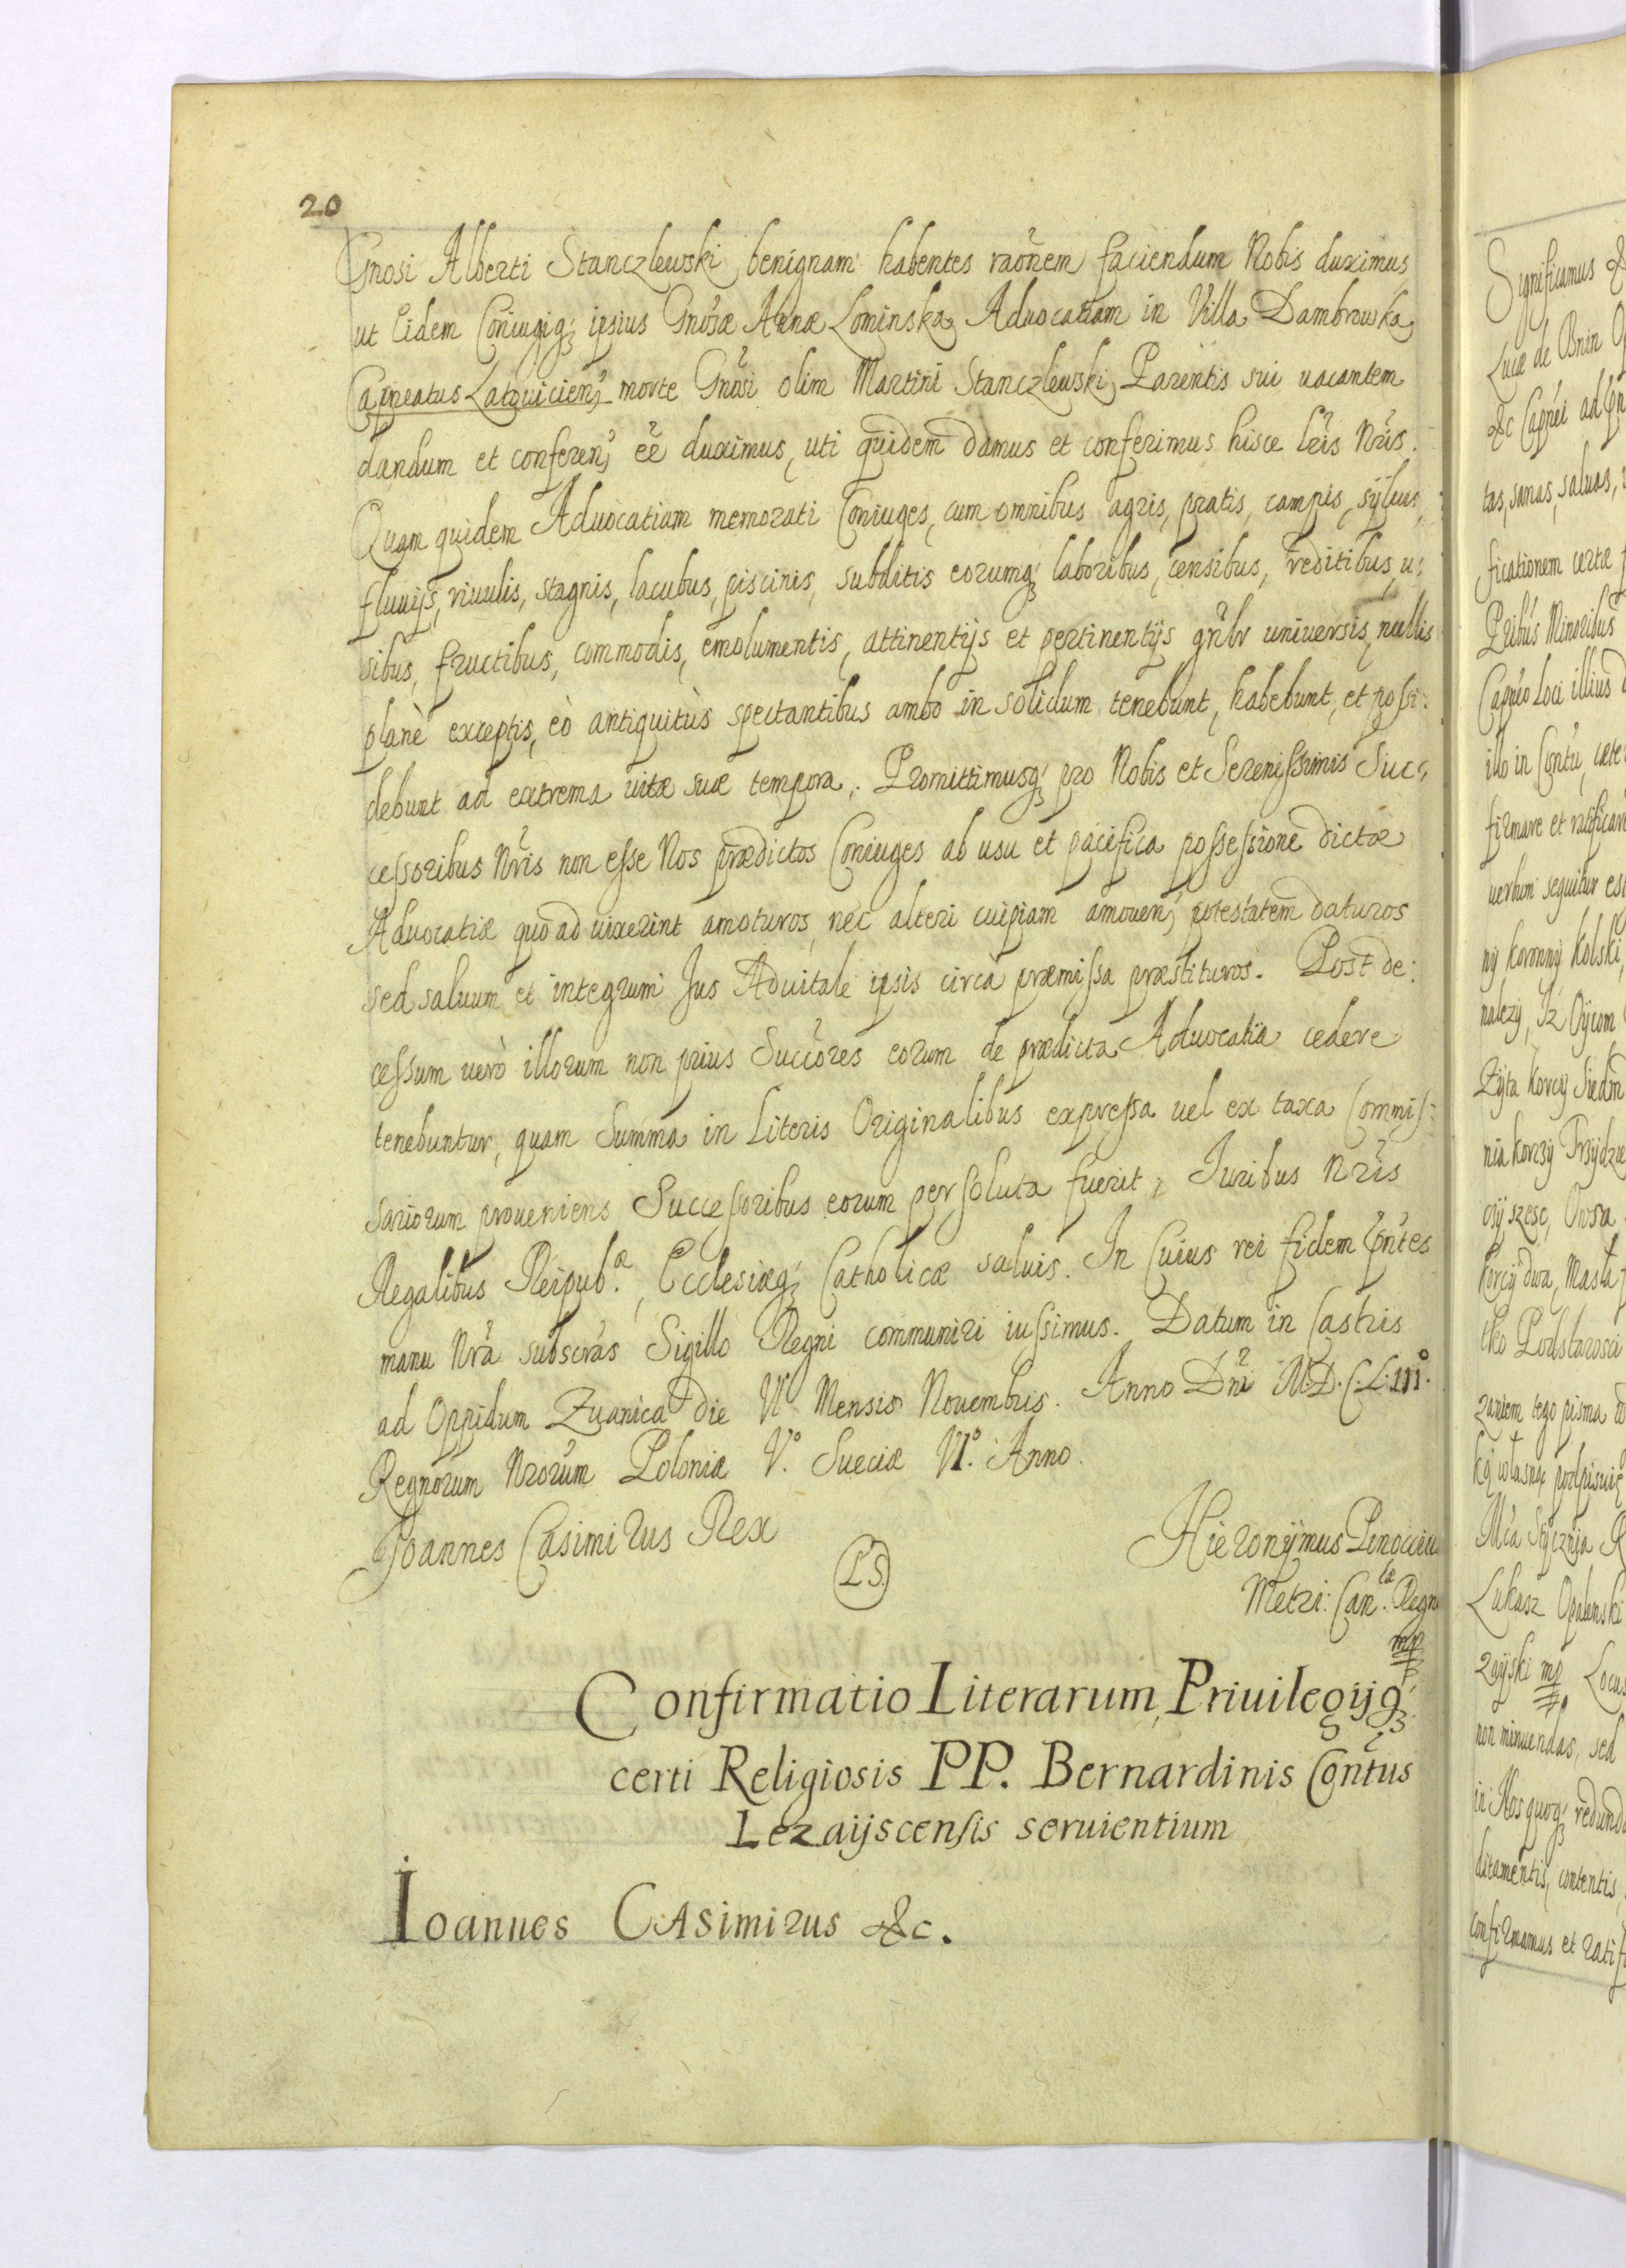 20
Gnosi Alberti Stanczlewski benignam habentes raõnem faciendum Nobis duximus,
ut Eidem Coniugiq; ipsius Gnosæ Annæ Lominska Aduocatiam in Villa Dambrowka
Capneatus Latouicien, morte Gnosi olim Martini Stanczlewski Parentis sui uacantem
dandum et conferen, eẽ duximus, uti quidem damus et conferimus hisce lris Nris.
Quam quidem Aduocatiam memorati Coniuges, cum omnibus agris, pratis, campis, syluis,
fluuijs, riuulis, stagnis, lacubus, piscinis, subditis eorumq; laboribus, censibus, reditibus, u:
sibus, fructibus, commodis, emolumentis, attinentijs et pertinentijs gnlr uniuersis, nullis
planè exceptis, eò antiquitùs spectantibus ambo in solidum tenebunt, habebunt, et possi:
debunt ad extrema uitæ suæ tempora. Promittimusq; pro Nobis et Serenissimis Suc:
cessoribus Nris non esse Nos prædictos Coniuges ab usu et pacifica possessione dictæ
Aduocatiæ quo ad uixerint amoturos, nec alteri cuipiam amouen, potestatem daturos
sed saluum et integrum Jus Aduitale ipsis circa præmissa præstituros. Post de:
cessum uerò illorum non prius Succores eorum de prædicta Aduocatia cedere
tenebuntur, quam Summa in Literis Originalibus expressa uel ex taxa Commis:
sariorum proueniens Successoribus eorum persoluta fuerit, Iuribus Nris
Regalibus Reipub.æ, Ecclesiæq; Catholicæ saluis. In Cuius rei fidem pntes
manu Nra subscras Sigillo Regni communiri iussimus. Datum in Castris
ad Oppidum Zuanica die VI Mensis Nouembris. Anno Dni M.D.C.L.III.º
Regnorum Nrorum Poloniæ V.º Sueciæ VI.º Anno.
Joannes Casimirus Rex
L.S.
Hieronymus Pinocciu
Metri: Can.læ Regn
mp
Confirmatio Literarum, Priuilegijq;
certi Religiosis PP. Bernardinis Contus
Lezaijscensis seruientium
Ioannes CAsimirus &c.
Significamus &
Lucæ de Bnin O
&c Capnei ad pn
tas, sanas, saluas,
ficationem certæ
Pribus Minoribus
Capneo Loci illius
illo in Contu, cæte
firmare et ratificare
uerbum sequitur est
ny koronny Kolski,
nalezy, Iz Oycom
Zyta korcy Siedm
nia korczy Trzydzie
cij szesc, Owsa
korcy dwa, Masła
tko Podstarosci
zaniem tego pisma
ką własną podpisuię
Mca Stycznia R
Łukasz Opalenski
zgijski mp Locus
non minuendas, sed
in Nos quoq; redund
ditamentis, contentis,
confirmamus et ratif